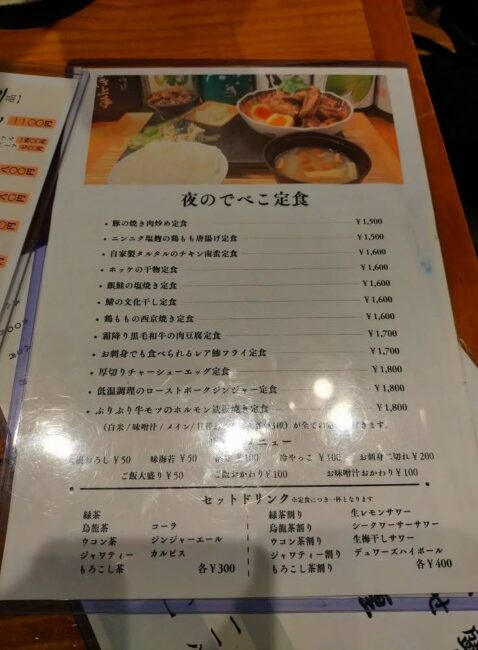 夜のでべこ定食
・豚の焼き肉炒め定食 ¥1,500
・ニンニク塩麹の鶏もも唐揚げ定食 ¥1,500
・自家製タルタルのチキン南蛮定食 ¥1,600
・ホッケの干物定食 ¥1,600
・銀鮭の塩焼き定食 ¥1,600
・鯖の文化干し定食 ¥1,600
・鶏ももの西京焼き定食 ¥1,600
・霜降り黒毛和牛の肉豆腐定食 ¥1,700
・お刺身でも食べられるレア鯵フライ定食 ¥1,700
・厚切りチャーシューエッグ定食 ¥1,800
・低温調理のローストポークジンジャー定食 ¥1,800
・ぷりぷり牛モツのホルモン鉄板焼き定食 ¥1,800
(白米/味噌汁/メイン/ が全ての定食に付きます。
メニュー
おろし ¥50 味海苔 ¥50 ¥100 冷やっこ ¥100 お刺身二切れ ¥200
ご飯大盛り ¥50 ご飯おかわり ¥100 お味噌汁おかわり ¥100
セットドリンク ※定食につき一杯となります
緑茶
烏龍茶 コーラ
ウコン茶 ジンジャーエール
ジャワティー カルピス
もろこし茶 各¥300
緑茶割り 生レモンサワー
烏龍茶割り シークワーサーサワー
ウコン茶割り 生梅干しサワー
ジャワティー割り デュワーズハイボール
もろこし茶割り 各¥400